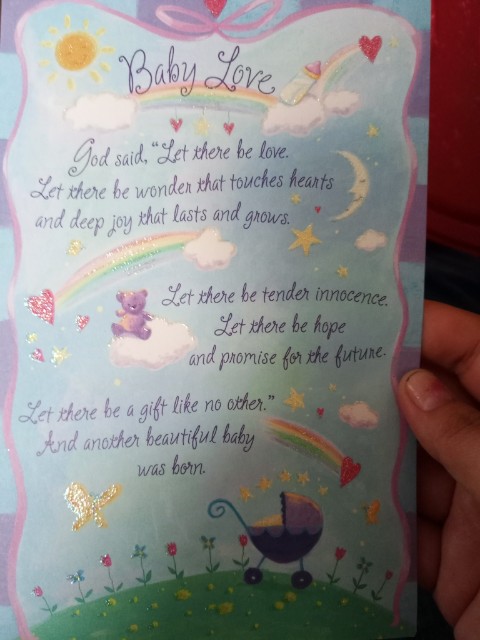 Baby Love
God said, "Let there be love.
Let there be wonder that touches hearts
and deep joy that lasts and grows.
Let there be tender innocence.
Let there be hope
and promise for the future.
Let there be a gift like no other."
And another beautiful baby
was born.